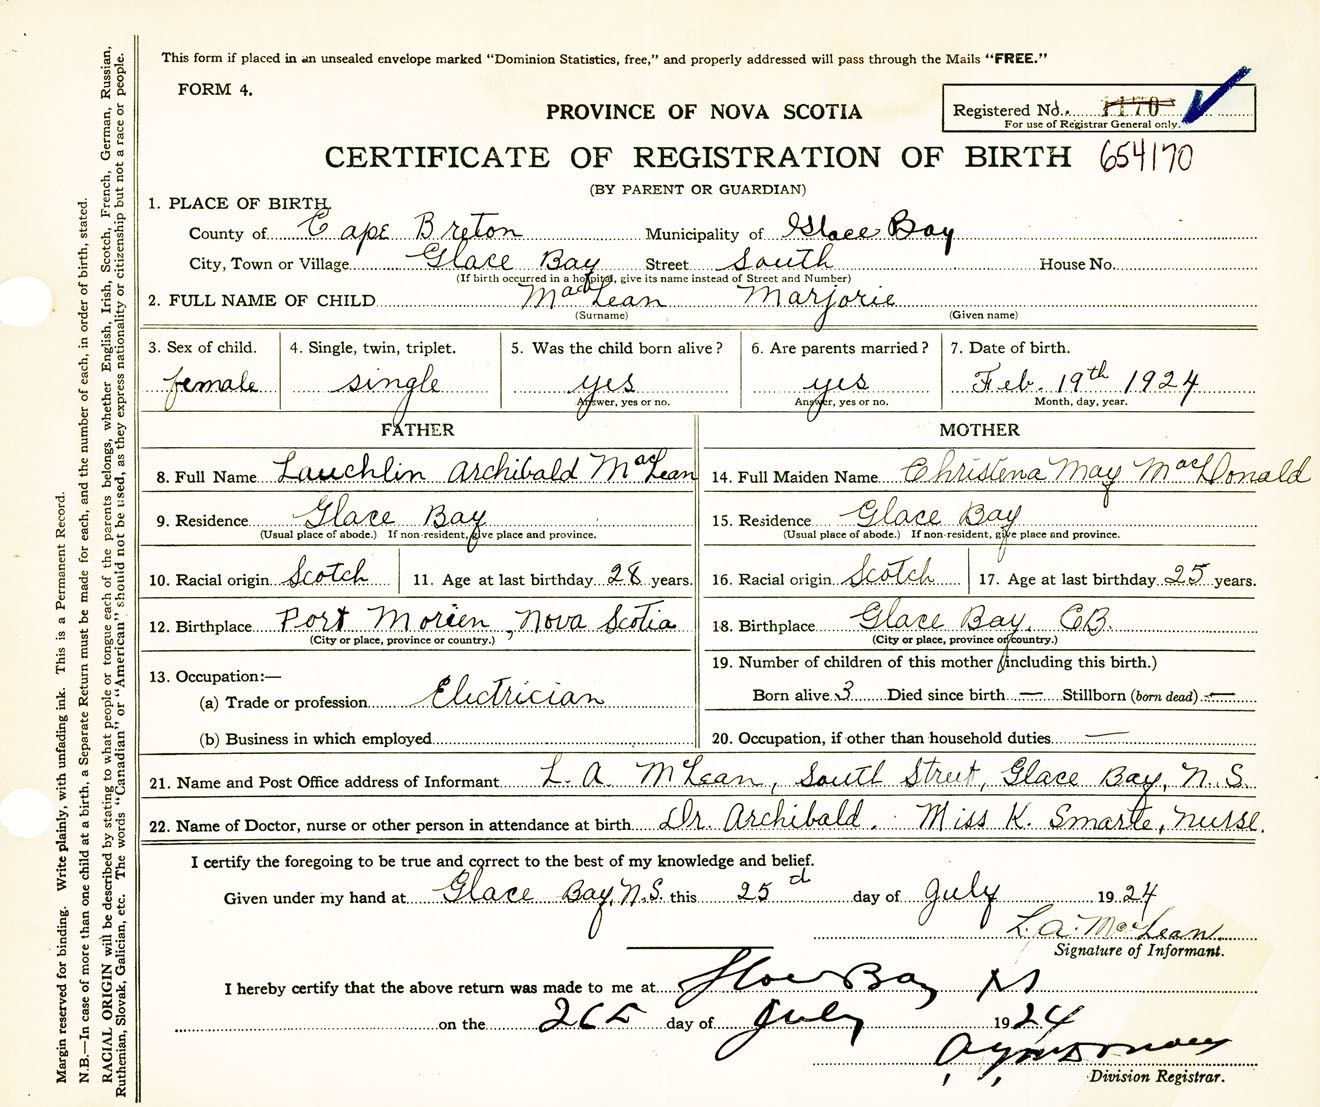 This form if placed in an unsealed envelope marked "Dominion Statistics, free," and properly addressed will pass through the Mails "FREE."
FORM 4.
PROVINCE OF NOVA SCOTIA
Registered No. 1170
For use of Registrar General only.
CERTIFICATE OF REGISTRATION OF BIRTH 654170
(BY PARENT OR GUARDIAN)
1. PLACE OF BIRTH
County of Cape Breton Municipality of Glace Bay
City, Town or Village Glace Bay Street South House No.
(If birth occurred in a hospital, give its name instead of Street and Number)
2. FULL NAME OF CHILD MacLean Marjorie
(Surname) (Given name)
3. Sex of child. 4. Single, twin, triplet. 5. Was the child born alive? 6. Are parents married? 7. Date of birth.
female single yes yes Feb. 19th 1924
Answer, yes or no. Answer, yes or no. Month, day, year.
FATHER MOTHER
8. Full Name Lauchlin Archibald MacLean 14. Full Maiden Name Christena May MacDonald
9. Residence Glace Bay 15. Residence Glace Bay
(Usual place of abode.) If non-resident, give place and province. (Usual place of abode.) If non-resident, give place and province.
10. Racial origin Scotch 11. Age at last birthday 28 years. 16. Racial origin Scotch 17. Age at last birthday 25 years.
12. Birthplace Port Morien, Nova Scotia 18. Birthplace Glace Bay, C.B.
(City or place, province or country.) (City or place, province or country.)
13. Occupation:— 19. Number of children of this mother (including this birth.)
(a) Trade or profession Electrician Born alive 3 Died since birth — Stillborn (born dead) —
(b) Business in which employed 20. Occupation, if other than household duties —
21. Name and Post Office address of Informant L. A. McLean, South Street, Glace Bay, N.S.
22. Name of Doctor, nurse or other person in attendance at birth Dr. Archibald. Miss K. Smarte, nurse.
I certify the foregoing to be true and correct to the best of my knowledge and belief.
Given under my hand at Glace Bay, N.S. this 25d day of July 1924
L. A. MacLean
Signature of Informant.
I hereby certify that the above return was made to me at Glace Bay
on the 26 day of July 1924
Division Registrar.
Margin reserved for binding. Write plainly, with unfading ink. This is a Permanent Record.
N.B.—In case of more than one child at a birth, a Separate Return must be made for each, and the number of each, in order of birth, stated.
RACIAL ORIGIN will be described by stating to what people or tongue each of the parents belongs, whether English, Irish, Scotch, French, German, Russian,
Ruthenian, Slovak, Galician, etc. The words "Canadian" or "American" should not be used, as they express nationality or citizenship but not a race or people.